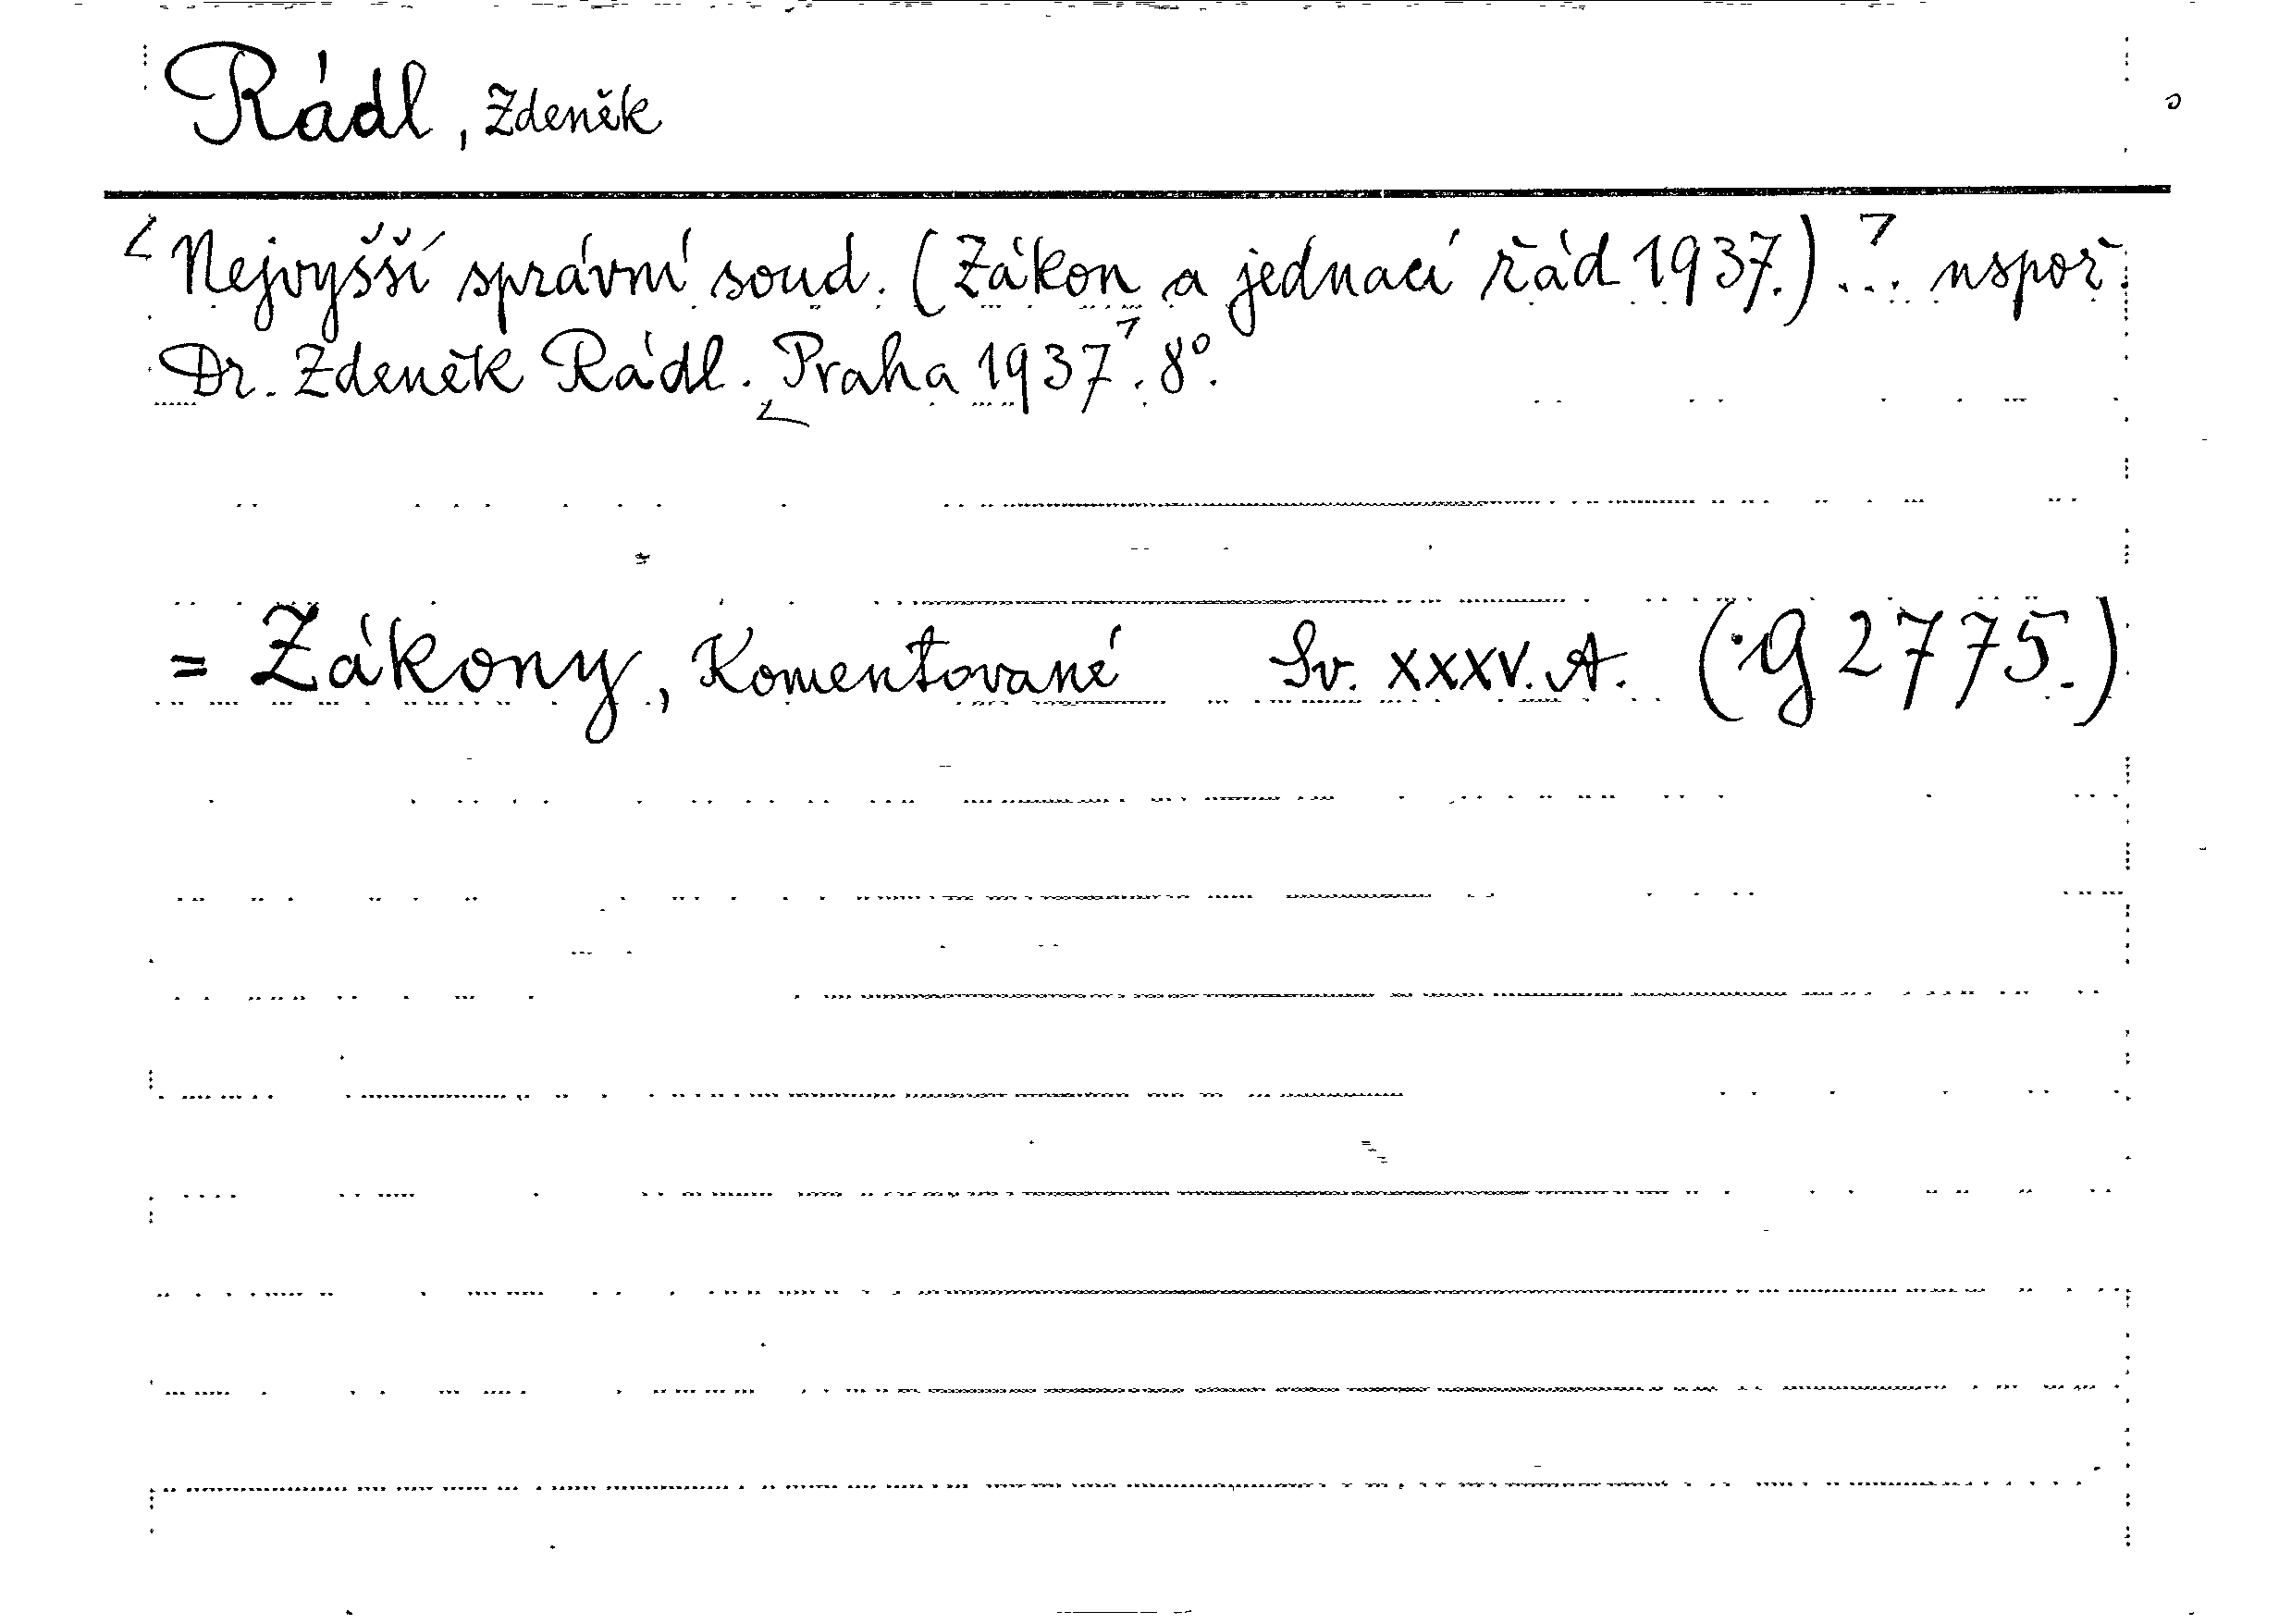 Rádl, Zdeněk
Nejvyšší správní soud. (Zákon a jednací řád 1937.) ... uspoř.
Dr. Zdeněk Rádl. Praha 1937. 8°.
= Zákony, Komentované Sv. XXXV. A. (:G 2775.)